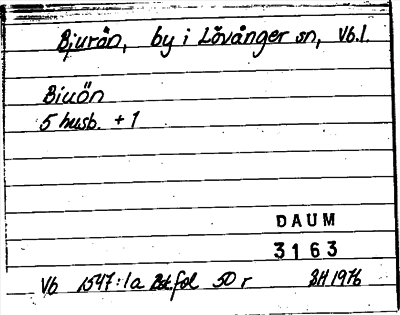 Bjurön, by i Lövånger sn, Vb.l.
Biuön
5 husb. + 1
DAUM
3163
Vb 1547:1a fol 50 r BH 1976